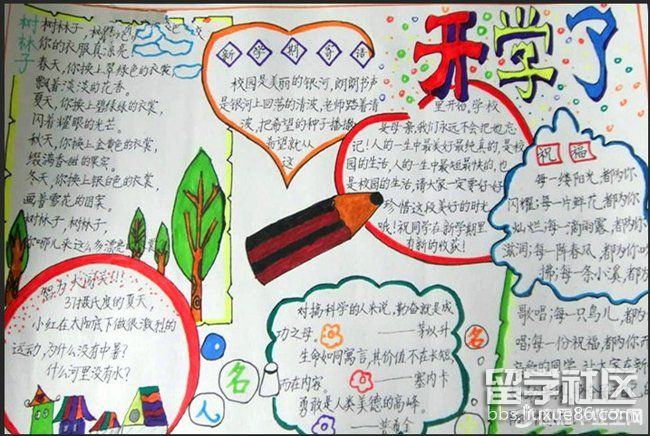 开学了
树林子
树林子,树林子
你的衣服真漂亮
春天,你换上翠绿色的衣裳
飘着淡淡的花香。
夏天,你换上碧绿绿的衣裳
闪着耀眼的光芒。
秋天,你换上金黄色的衣裳
缀满香甜的果实。
冬天,你换上银白色的衣裳,
画着雪花的图案。
树林子,树林子,
你哪儿来这么多漂亮
新学期寄语
校园是美丽的银河,朗朗书声
是银河上回荡的清波,老师踏着清
波,把希望的种子播撒
希望就从
这
里开始,学校
是母亲,我们永远不会把他忘
记!人的一生中最美好最纯真的,是校
园的生活,人的一生中最短最快的,也
是校园的生活,请大家一定要好好
珍惜这段美好的时光
哦!祝同学在新学期里
有新的收获!
祝福
每一缕阳光,都为你
闪耀;每一片鲜花,都为你
灿烂;每一滴雨露,都为你
滋润;每一阵春风,都为你
拂;每一条小溪,都为
歌唱;每一只鸟儿,都为
唱;每一份祝福,都为你开
智力大闯关!!!
37摄氏度的夏天,
小红在太阳底下做很激烈的
运动,为什么没有中暑?
什么河里没有水?
对搞科学的人来说,勤奋就是成
功之母——茅以升
生命如同寓言,其价值不在长短
而在内容。——塞内卡
勇敢是人类美德的高峰。
普希金
名人名
留学社区
bbs.liuxue86.com